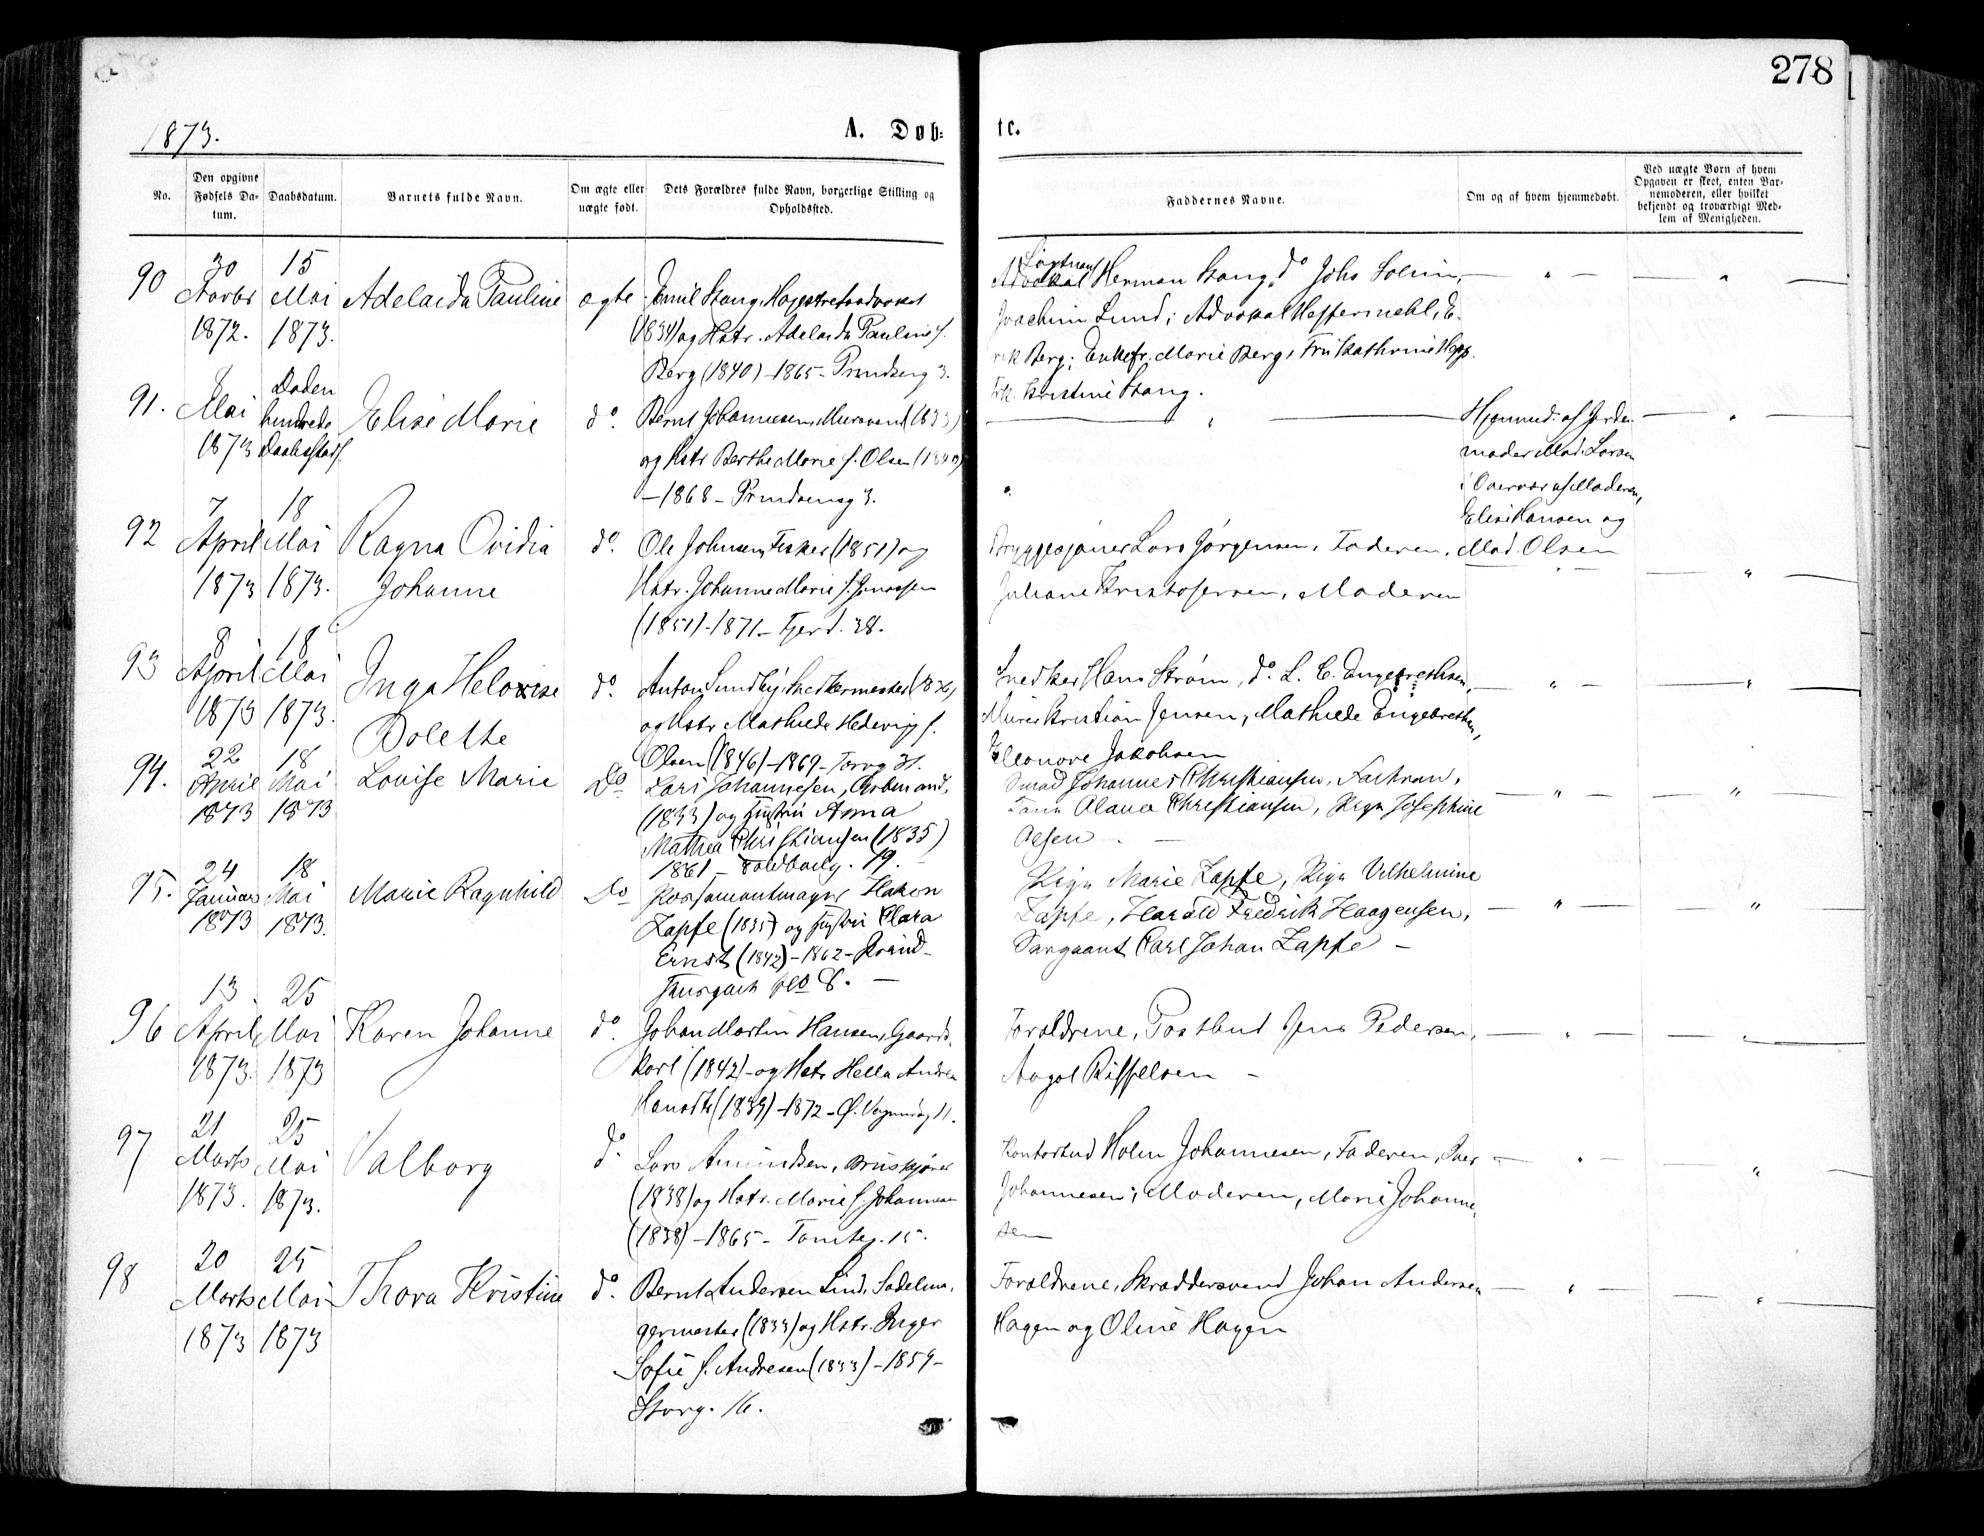 278
1873.
A. Døb=
te.
No.
Den opgivne Fødsels Datum.
Daabsdatum.
Barnets fulde Navn.
Om ægte eller uægte født.
Dets Forældres fulde Navn, borgerlige Stilling og Opholdssted.
Faddernes Navne.
Om og af hvem hjemmedøbt.
Ved uægte Børn af hvem Opgaven er skeet, enten Barnemoderen, eller hvilket bekjendt og troværdigt Medlem af Menigheden.
90
30
1872.
15
Mai
1873.
Adelaida Pauline
ægte
Emil Stang, Høiesteretsadvokat
(1834) og Hstr. Adelaida Pauline f.
Berg (1840) - 1865 - Prindseng 3.
Advokat Herman Stang, do Johs
Joachim Lund; Advokat E-
rik Berg; Enkefr. Marie Berg, Fru Kathrine
Frk. Kristine Stang.
91.
8
Mai
1873
Døden
hindrede
Elise Marie
do.
Bernt Johannesen, Mursvend (1833)
og Hstr Berthe Marie f. Olsen
- 1868 - Prindseng 3.
Hjemmed. af Jorde-
moder Mad. Larsen
i Overvær af Moderen,
Elise Hansen og
Mad. Olsen
92
7
April
1873
18
Mai
1873.
Ragna Ovidia
Johanne
do.
Ole Johnsen, Fisker (1851) og
Hstr. Johanne Marie f.
(1851) - 1871 - Fjerd. 28.
Bryggesjauer Lars Jørgensen, Faderen,
Juliane Kristofersen, Moderen
93
8
April
1873
18
Mai
1873.
Inga Heloise
Dolette
do.
Anton Sundby, Snedkermester (1836)
og Hstr Mathilde Hedevig f.
Olsen (1846) - 1869 - Torvg 31.
Snedker Hans Strøm, do. L. C. Engebrethsen,
Murer Kristian Jensen, Mathilde Engebrethsen,
Eleonore Jakobsen
94.
22
April
1873
18
Mai
1873
Louise Marie
Do
Lars Johannesen, Arbmand,
(1833) og Hustru Anna
Mathea Christiansen (1835)
1861 - 19.
Smed Johannes Christiansen, Fastrow,
Olava Christiansen, Pige Josephine
Olsen -
95.
24
Januar
1873
18
Mai
1873.
Marie Ragnhild
Do
Possamentmager Hakon
Zapfe (1835) og Hustru Clara
Ernst (1842) - 1862 - Prind-
8. -
Pige Marie Zapfe, Pige Vilhelmine
Zapfe, Harald Fredrik Haagensen,
Sargeant Carl Johan Zapfe -
96
13
April
1873.
25
Mai
1873
Karen Johanne
do.
Johan Martin Hansen, Gaards-
karl (1842) - og Hstr Hella Andrea
(1839) - 1872 - Ø. Vognmdsg 11.
Forældrene, Postbud Jens Pedersen,
97
21
Marts
1873.
25
Mai
1873.
Valborg
do.
Lars Amundsen, Huskjører
(1838) og Hstr. Marie f. Johannesen
(1838) - 1865 - Tomteg. 15.
Kontorbud Holm Johannesen, Faderen, Iver
Johannesen; Moderen, Marie Johanne-
sen
98
20
Marts
1873
25
Mai
1873
Thora Kristine
do.
Bernt Andersen Lind, Sadelma-
germester (1833) og Hstr. Inger
Sofie f. Andresen (1833) - 1859 -
Storg. 16.
Forældrene, Skræddersvend Johan Andersen
Hagen og Oline Hagen